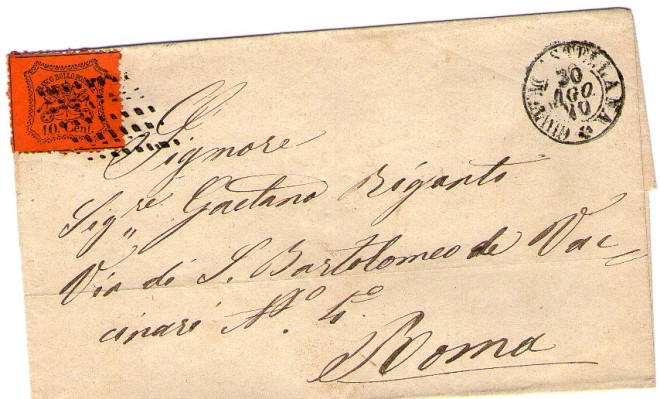 FRANCO BOLLO POSTALE
10 Cent.
CIVITA CASTELLANA
30
AGO
70
Signore
Sig.re Gaetano Riganti
Via di S. Bartolomeo de Vac=
cinari N.º
Roma